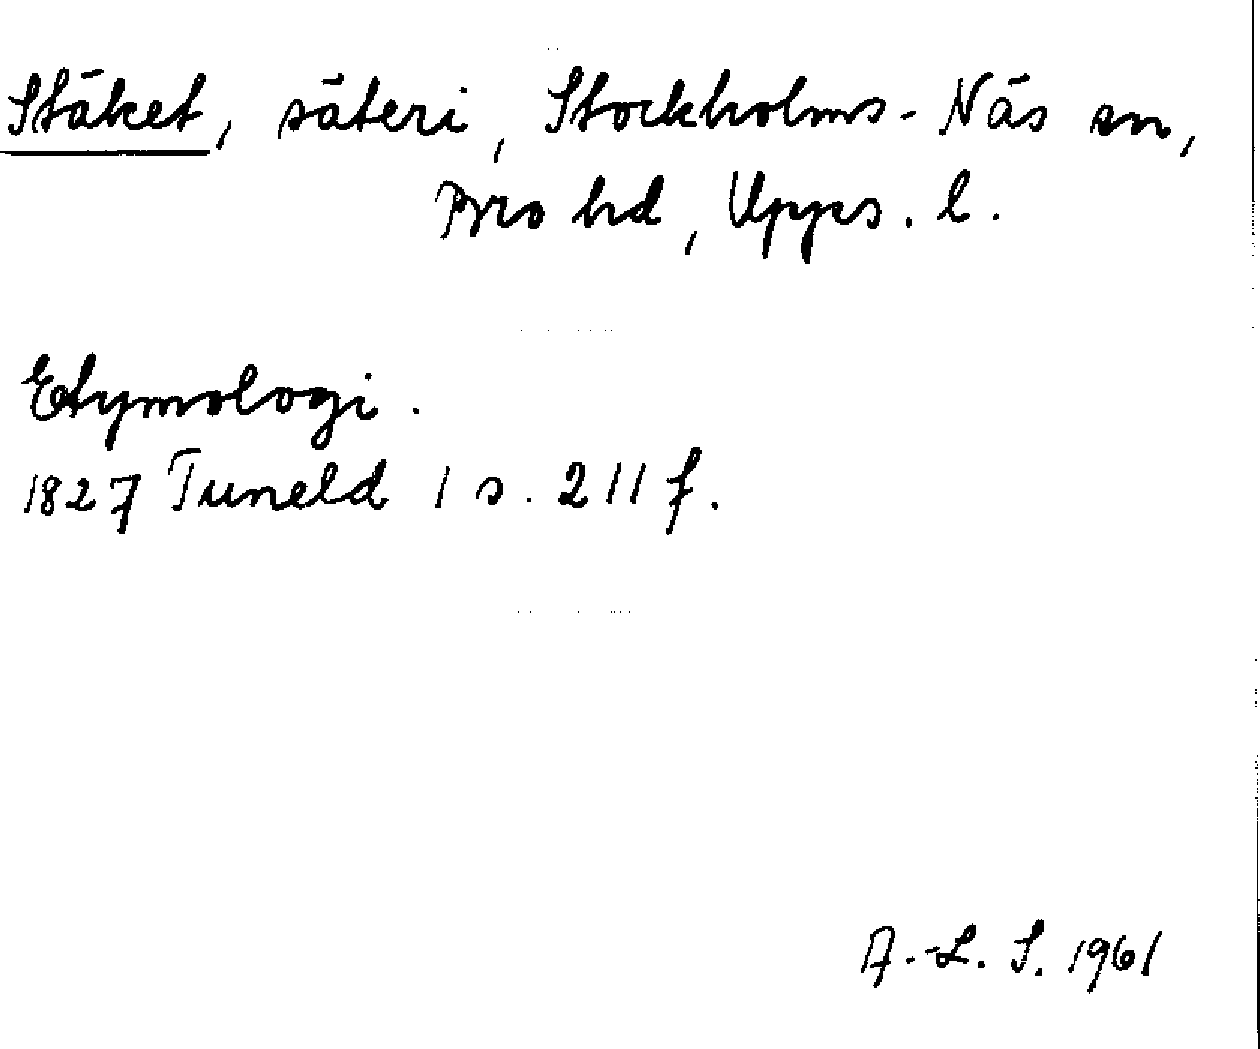 Stäket, säteri, Stockholms-Näs sn,
Bro hd, Upps. l.
Etymologi.
1827 Tuneld 1 s. 211 f.
A.-L. S. 1961